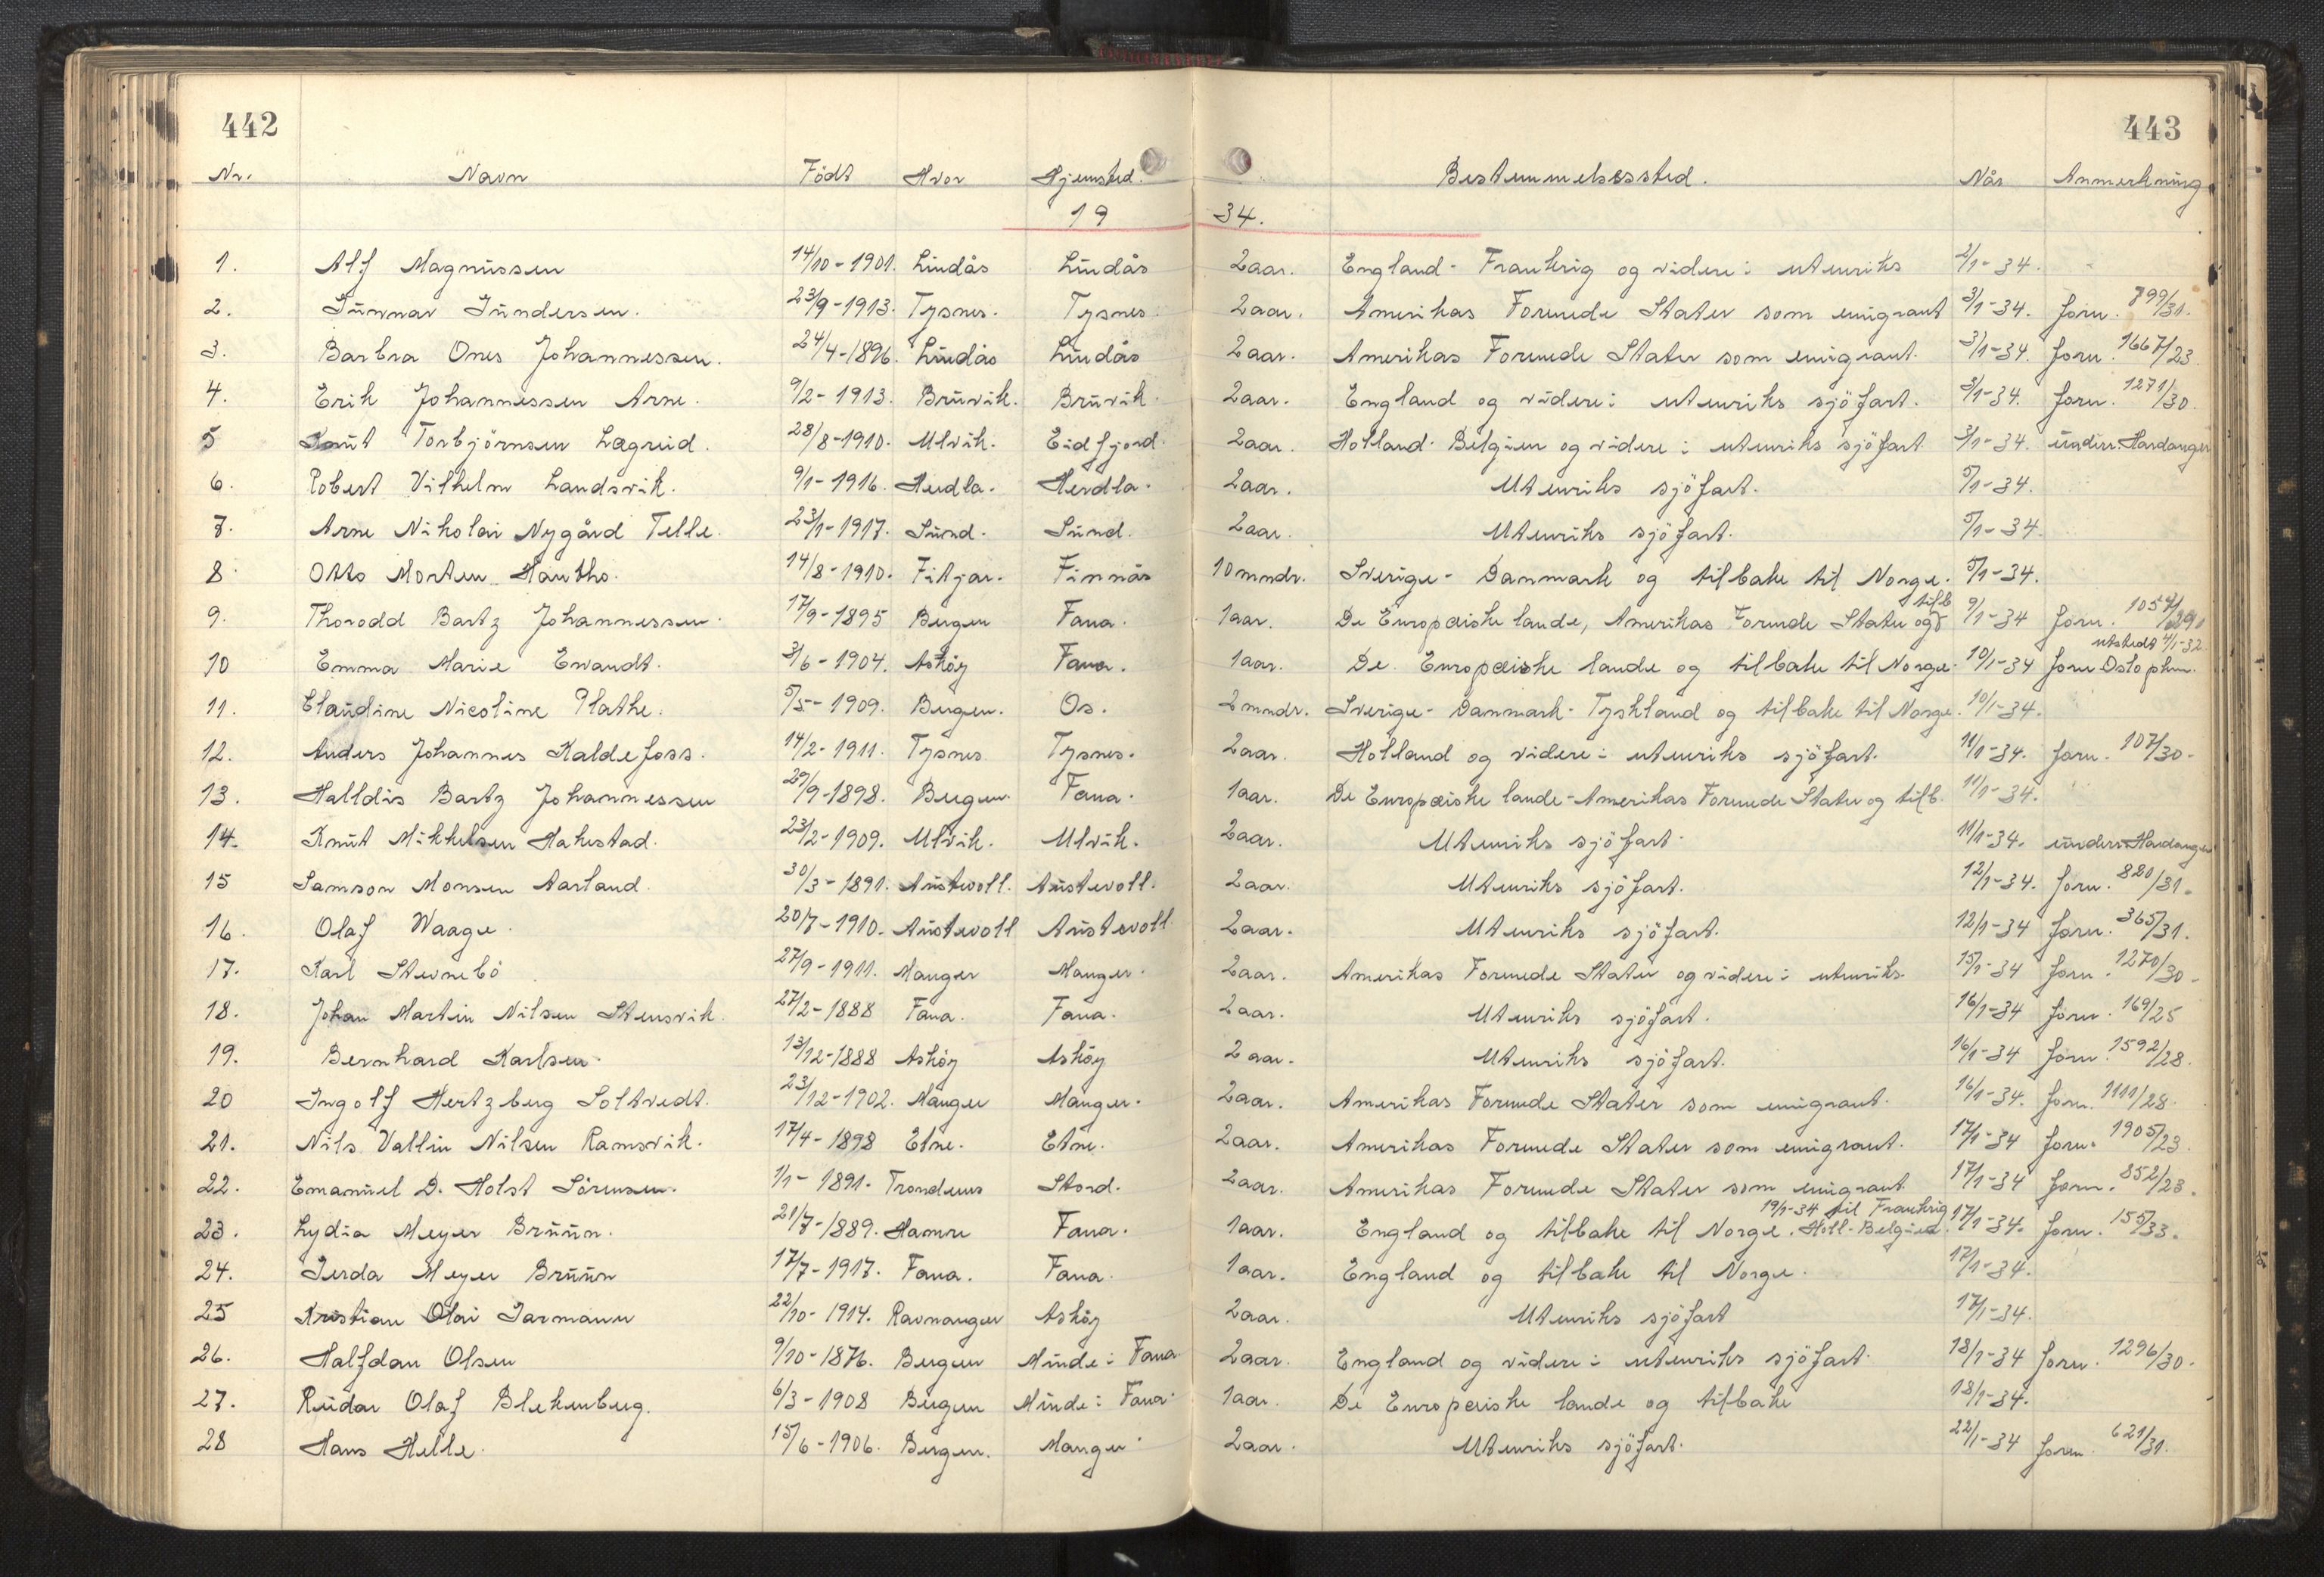 442
443
Nr. Navn Födt Hvor Hjemsted. Bestemmelsessted. Når Anmerkning
19 34.
1. Alf Magnussen 14/10-1901. Lindås Lindås 2aar. England- Frankrig og videre i utenriks 2/1-34.
2. Gunnar Gundersen. 23/9-1913. Tysnes. Tysnes. 2aar. Amerikas Forenede Stater som emigrant 3/1-34. forn. 799/31.
3. Barbra Ones Johannessen. 24/4-1896. Lindås Lindås 2aar. Amerikas Forenede Stater som emigrant. 3/1-34. forn. 1667/23.
4. Erik Johannessen Arne. 9/2-1913. Bruvik. Bruvik. 2aar. England og videre i utenriks sjöfart. 3/1-34. forn. 1271/30.
5 Knut Torbjörnsen Lægreid. 28/8-1910. Ulvik. Eidfjord. 2aar. Holland- Belgien og videre i utenriks sjöfart 3/1-34. underr. Hardanger
6. Robert Vilhelm Landsvik. 9/1-1916. Herdla. Herdla. 2aar. Utenriks sjöfart. 5/1-34.
7. Arne Nikolai Nygård Telle. 23/1-1917. Sund. Sund. 2aar. Utenriks sjöfart. 5/1-34.
8. Otto Morten Hautho. 14/8-1910. Fitjar. Finnås 10mndr. Sverige- Danmark og tilbake til Norge. 5/1-34.
9. Thorodd Bartz Johannessen. 17/9-1895 Bergen Fana. 1aar. De Europæiske lande, Amerikas Forende Stater og tilb 9/1-34 forn. 1054/29.
utstedt 4/1-32
10 Emma Marie Ewandt. 3/6-1904. Askøy Fana. 1aar. De Europæiske lande og tilbake til Norge. 10/1-34 forn Oslo pkm.
11. Claudine Nicoline Plathe. 5/5-1909. Bergen. Os. 2mndr. Sverige- Danmark- Tyskland og tilbake til Norge. 10/1-34.
12. Anders Johannes Kaldefoss. 14/2-1911. Tysnes Tysnes. 2aar. Holland og videre i utenriks sjöfart. 11/1-34. forn. 107/30-
13. Halldis Bartz Johannessen 29/9-1898. Bergen. Fana. 1aar. De Europæiske lande- Amerikas Forenede Stater og tilb. 11/1-34.
14. Knut Mikkelsen Hakestad. 23/2-1909. Ulvik. Ulvik. 2aar. Utenriks sjöfart. 11/1-34. underr Hardanger
15 Samson Monsen Aarland. 30/3-1891. Austevoll. Austevoll. 2aar. Utenriks sjöfart. 12/1-34. forn. 820/31.
16. Olaf Waage. 20/7-1910. Austevoll Austevoll 2aar. Utenriks sjöfart. 12/1-34 forn. 365/31.
17. Karl Stevnebö 27/9-1911. Manger Manger. 2aar. Amerikas Forenede Stater og videre i utenriks. 15/1-34 forn. 1270/30-
18. Johan Martin Nilsen Stensvik. 27/2-1888 Fana. Fana. 2aar. Utenriks sjöfart. 16/1-34 forn. 169/25
19. Bernhard Karlsen. 13/12-1888 Askøy Askøy 2aar. Utenriks sjöfart. 16/1-34 forn. 1592/28.
20 Ingolf Hertzberg Soltvedt. 23/12-1902. Manger Manger. 2aar. Amerikas Forende Stater som emigrant. 16/1-34. forn. 1111/28.
21. Nils Vallin Nilsen Ramsvik. 17/4-1898 Etne. Etne. 2aar. Amerikas Forenede Stater som emigrant. 17/1-34 forn. 1905/23.
22. Emanuel D. Holst Sörensen. 1/1-1891. Trondenes Stord. 2aar. Amerikas Forenede Stater som emigrant 17/1-34 forn. 852/23.
19/1-34 til Frankrig
23. Lydia Meyer Bruun. 21/7-1889. Hamre Fana. 1aar. England og tilbake til Norge. Holl- Belgien. 17/1-34. forn. 155/33.
24. Gerda Meyer Bruun 17/7-1917. Fana. Fana. 1aar. England og tilbake til Norge. 17/1-34.
25 Kristian Olai Garmann 22/10-1914. Ravnanger Askøy 2aar. Utenriks sjöfart 17/1-34.
26. Halfdan Olsen 9/10-1876. Bergen Minde i Fana. 2aar. England og videre i utenriks sjöfart. 18/1-34 forn. 1296/30-
27. Reidar Olaf Blekenberg. 6/3-1908 Bergen Minde i Fana. 1aar. De Europæiske lande og tilbake 18/1-34.
28 Hans Helle. 15/6-1906. Bergen. Manger. 2aar. Utenriks sjöfart. 22/1-34 forn. 621/31.